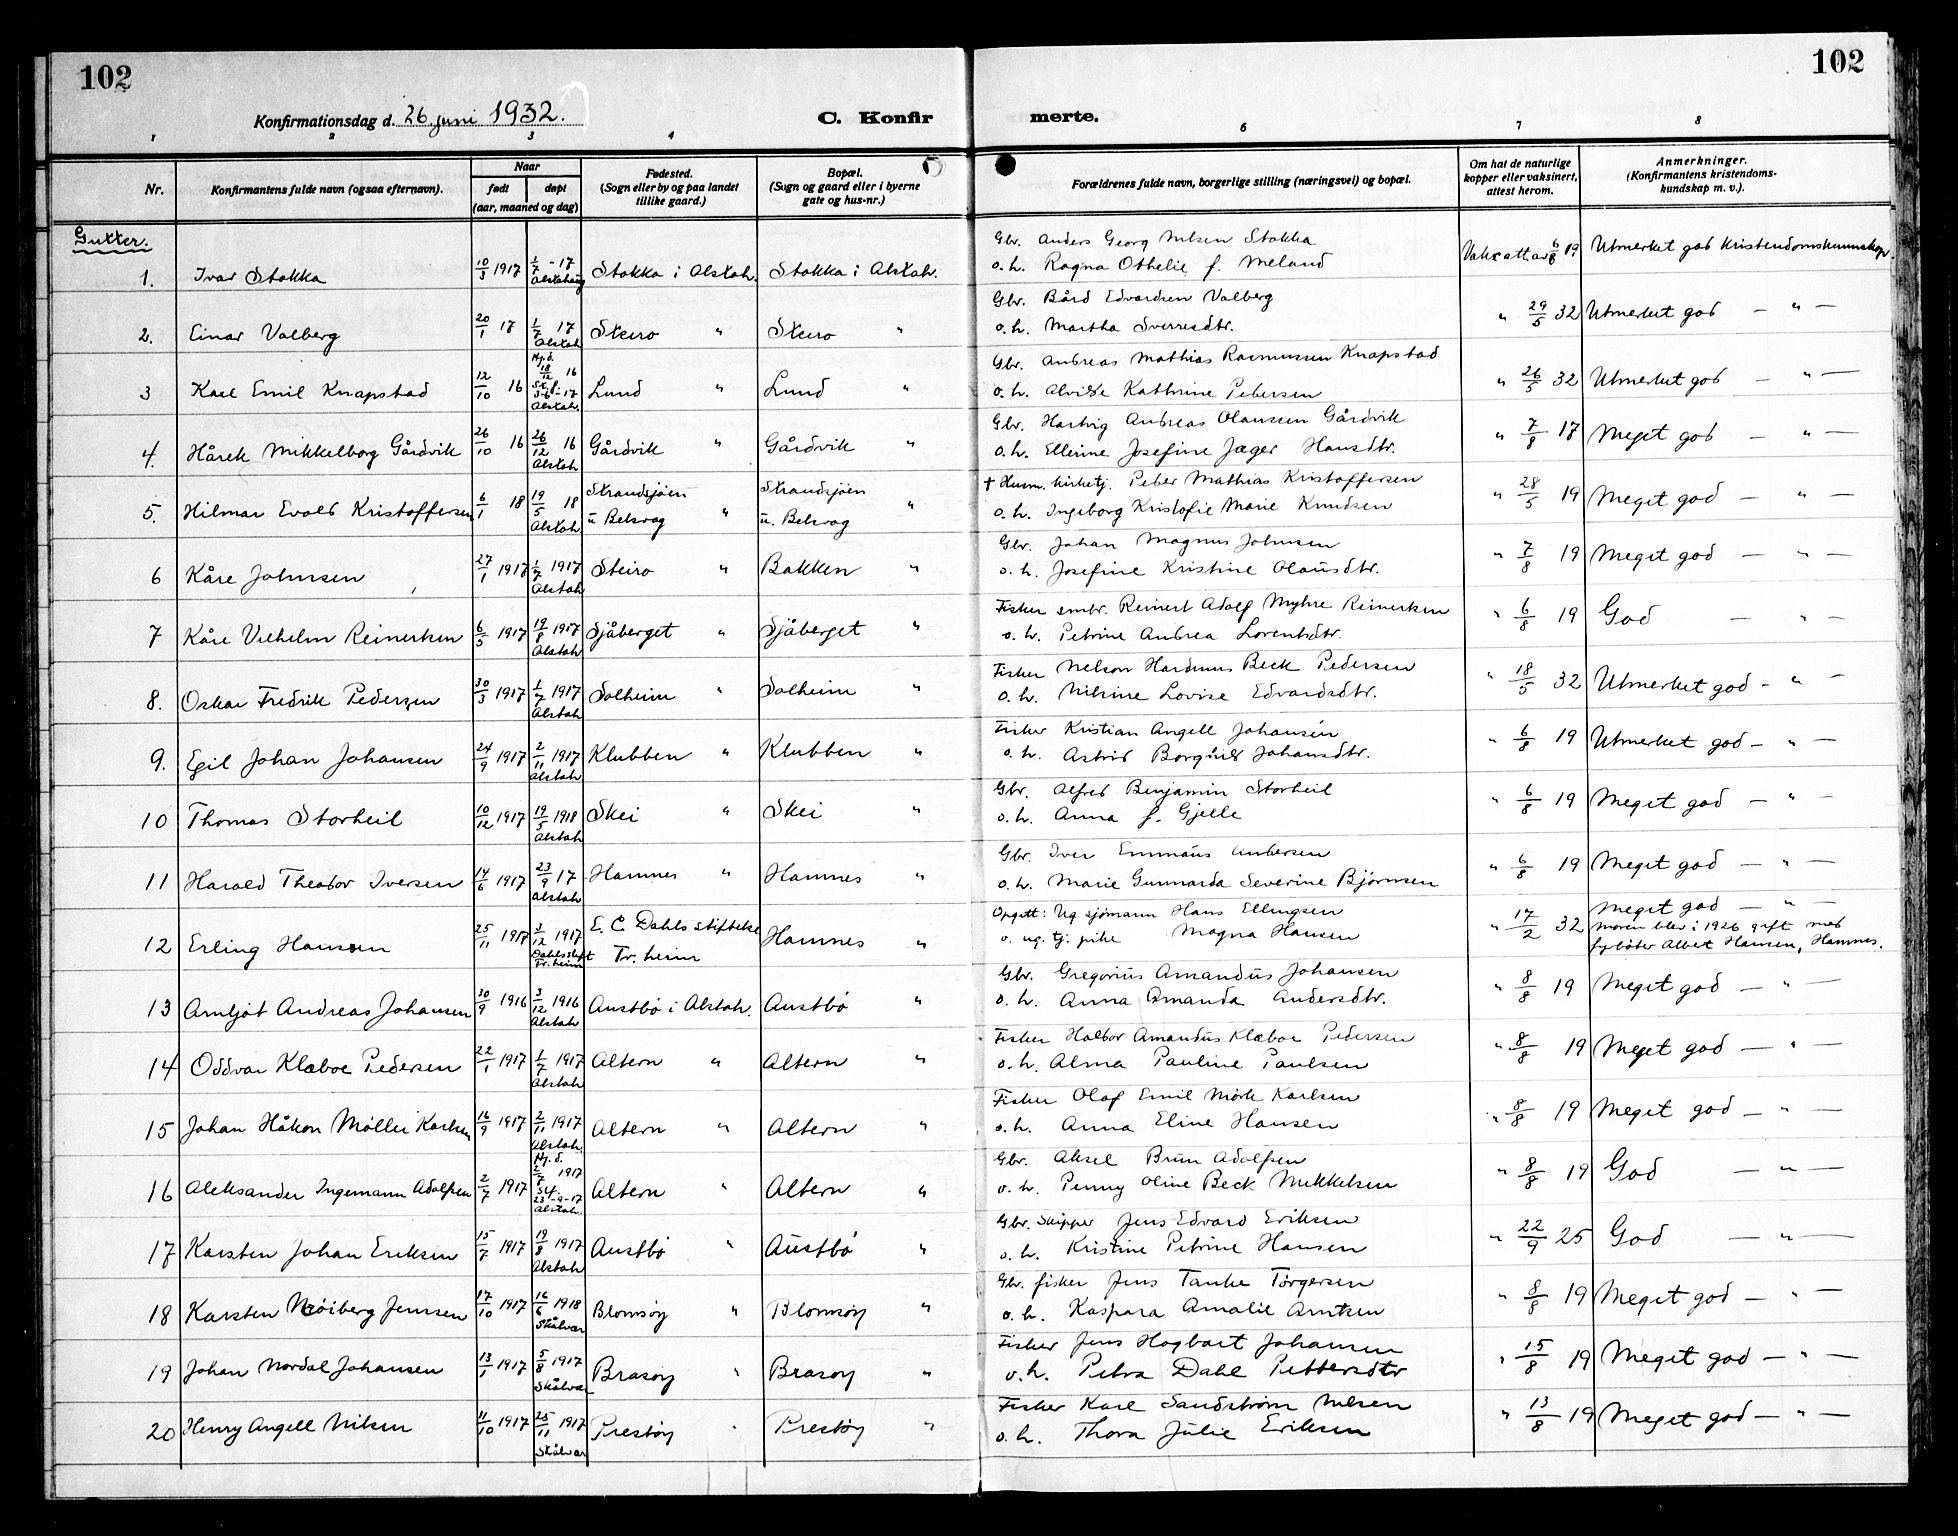 102
102
Konfirmationsdag d. 26. juni 1932.
C. Konfir
merte.
1 2 3 4 6 7 8
Nr.
Konfirmantens fulde navn (ogsaa efternavn).
Naar
født
døpt
(aar, maaned og dag)
Fødested.
(Sogn eller by og paa landet
tillike gaard.)
Bopæl.
(Sogn og gaard eller i byerne
gate og hus-nr.)
Forældrenes fulde navn, borgerlige stilling (næringsvei) og bopæl.
Om hat de naturlige
kopper eller vaksinert,
attest herom.
Anmerkninger.
(Konfirmantens kristendoms-
kundskap m. v.).
Gutter.
1. Ivar Stokka 10/3 1917 1/7 -17 Alstahaug Stokka i Alstah. Stokka i Alstah.
Gbr. Anders Georg Nilsen Stokka
o. h. Ragna Othelie f. Meland
Vaks.att. av 6/8 19 Utmerket god Kristendomskunnskap.
2. Einar Valberg 20/1 17 1/7 17 Alstah Steiro " Steiro "
Gbr. Bård Edvardsen Valberg
o. h. Martha Sverresdtr.
" 29/5 32 Utmerket god — " —
3 Karl Emil Knapstad 12/10 16 Hj.d. 18/12 16 St.f. 3-6-17 Alstah. Lund " Lund "
Gbr. Andreas Mathias Rasmussen Knapstad
o. h. Alvilde Kathrine Pedersen
" 26/5 32 Utmerket god — " —
4. Hårek Mikkelborg Gårdvik 26/10 16 26/12 16 Alstah Gårdvik " Gårdvik "
Gbr. Hartvig Andreas Olaussen Gårdvik
o. h. Ellerine Josefine Jæger Hansdtr.
" 7/8 17 Meget god — " —
5. Hilmar Evald Kristoffersen 6/1 18 19/5 18 Alstah Strandsjøen u Belsvag " Strandsjøen u. Belsvag "
† Husm. kirketj. Peder Mathias Kristoffersen
o. h. Ingeborg Kristofie Marie Knudsen
" 28/5 19 Meget god — " —
6 Kåre Johnsen 27/1 1917 1/7 1917 Alstah Steiro " Bakken "
Gbr. Johan Magnus Johnsen
o. h. Josefine Kristine Olausdtr.
" 7/8 19 Meget god — " —
7 Kåre Vilhelm Reinertsen 6/5 1917 19/8 1917 Alstah Sjåberget " Sjåberget "
Fisker småbr. Reinert Adolf Myhre Reinertsen
o. h. Petrine Andrea Lorentsdtr.
" 6/8 19 God — " —
8. Oskar Fredrik Pedersen 30/3 1917 1/7 1917 Alstah Solheim " Solheim "
Fisker Nelson Hardenus Beck Pedersen
o. h. Nilsine Lovise Edvardsdtr.
" 18/5 32 Utmerket god — " —
9. Egil Johan Johansen 24/9 1917 2/11 1917 Alstah Klubben " Klubben "
Fisker Kristian Angell Johansen
o. h. Astrid Borghild Johansdtr.
" 6/8 19 Utmerket god — " —
10 Thomas Storheil 10/12 1917 19/5 1918 Alstah Skei " Skei "
Gbr. Alfred Benjamin Storheil
o. h. Anna f. Gjelle
" 6/8 19 Meget god — " —
11 Harald Theodor Iversen 14/6 1917 23/9 17 Alstah Hamnes " Hamnes "
Gbr. Iver Emmaus Andersen
o. h. Marie Gunnarda Severine Bjørnsen
" 6/8 19 Meget god — " —
12 Erling Hansen 25/11 1917 3/12 1917 Dahls stift Tr.heim E. C. Dahls stiftelse Tr. heim Hamnes "
Opgitt: Ug sjømann Hans Ellingsen
o. ug. tj. pike Magna Hansen
" 17/2 32 Meget god — " —
Moren blev i 1926 gift med
fyrbøter Albert Hansen, Hamnes.
13 Arnljot Andreas Johansen 30/9 1916 3/12 1916 Alstah Austbø i Alstah. Austbø "
Gbr. Gregorius Amandus Johansen
o. h. Anna Amanda Andersdtr.
" 8/8 19 Meget god — " —
14 Oddvar Klæboe Pedersen 22/1 1917 1/7 1917 Alstah Altern " Altern "
Fisker Haldor Amandus Klæboe Pedersen
o. h. Alma Pauline Paulsen
" 8/8 19 Meget god — " —
15 Johan Håkon Møller Karlsen 16/9 1917 2/11 1917 Alstah. Altern " Altern "
Fisker Olaf Emil Mørk Karlsen
o. h. Anna Eline Hansen
" 8/8 19 Meget god — " —
16 Aleksander Ingemann Adolfsen 2/7 1917 Hj.d. 2/7 1917 St.f. 23-9-17 Alstah. Altern " Altern "
Gbr. Aksel Brun Adolfsen
o. h. Penny Oline Beck Mikkelsen
" 8/8 19 God — " —
17 Karsten Johan Eriksen 15/7 1917 19/8 1917 Alstah Austbø " Austbø "
Gbr. skipper Jens Edvard Eriksen
o. h. Kristine Petrine Hansen
" 22/9 25 God — " —
18 Karsten Jenssen 17/10 1917 16/6 1918 Skålvær Blomsøy " Blomsøy "
Gbr. fisker Jens Tanke Torgersen
o. h. Kaspara Amalie Arntsen
" 8/8 19 Meget god — " —
19 Johan Nordal Johansen 13/1 1917 5/8 1917 Skålvær Brasøy " Brasøy "
Fisker Jens Hagbart Johansen
o. h. Petra Dahl Pettersdtr
" 15/8 19 Meget god — " —
20 Henry Angell Nilsen 11/10 1917 25/11 1917 Skålvær Prestøy " Prestøy "
Fisker Karl Sandstrøm Nilsen
o. h. Thora Julie Eriksen
" 13/8 19 Meget god — " —